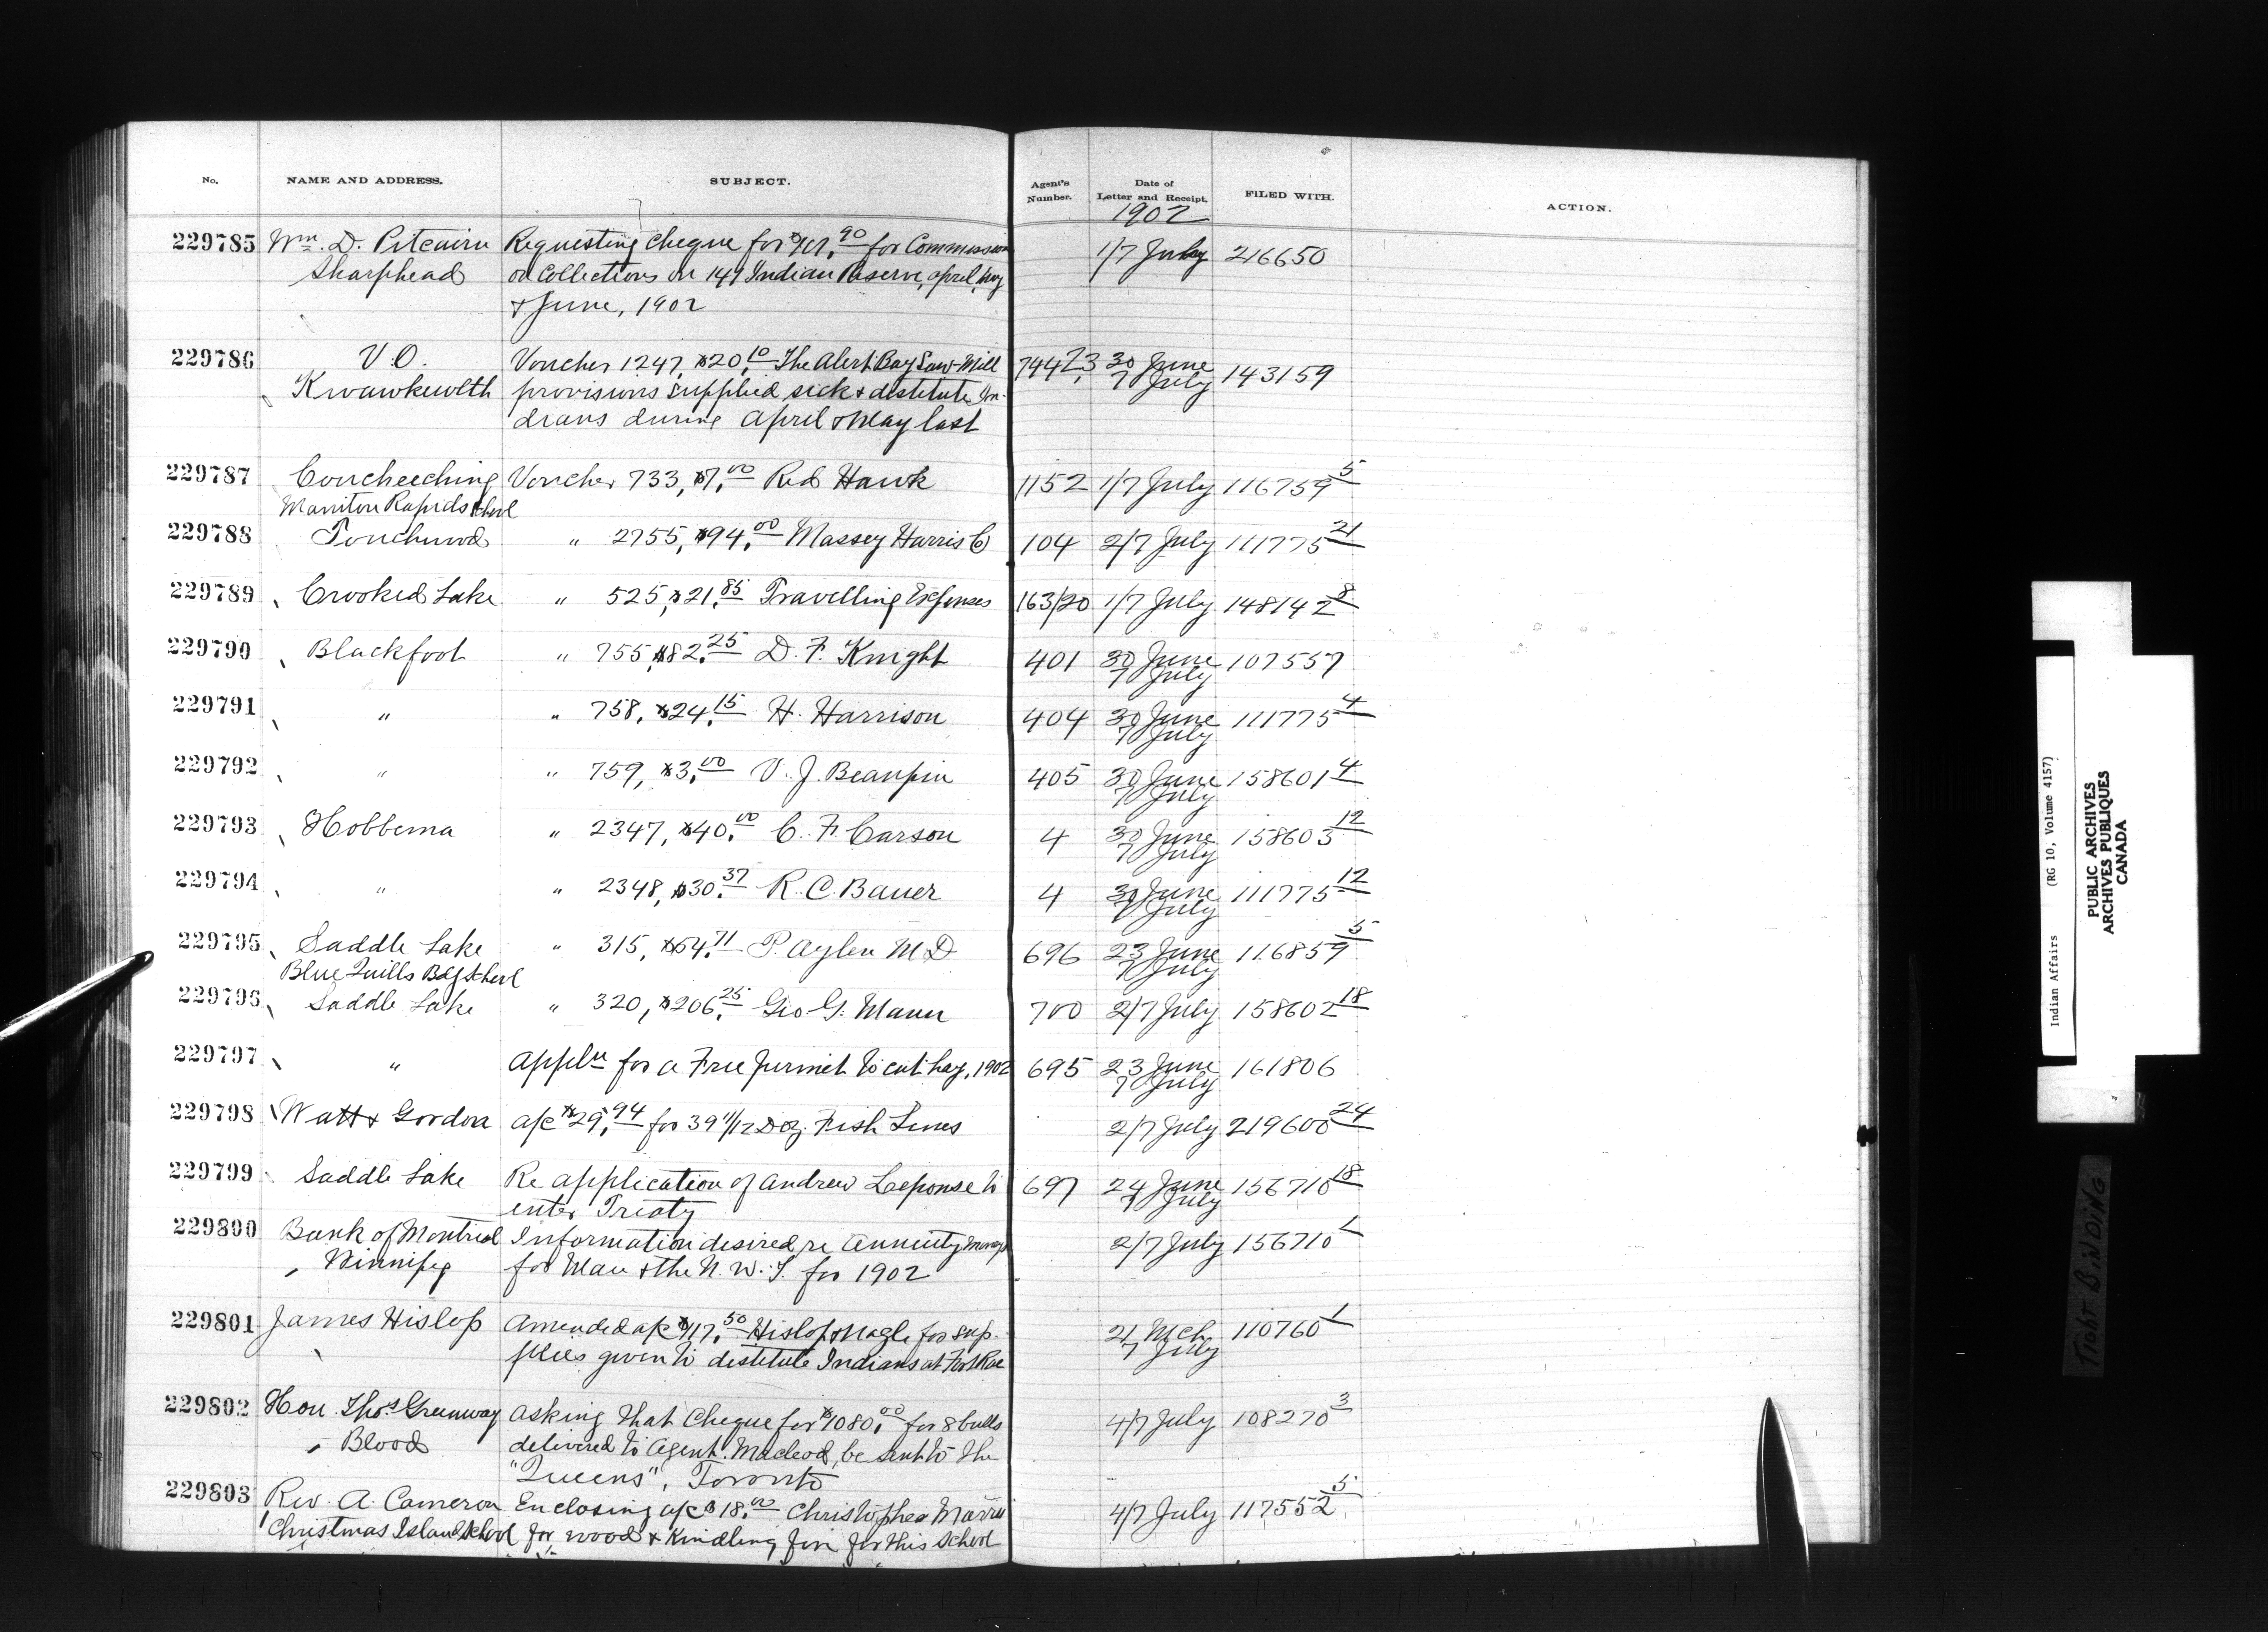 No. NAME AND ADDRESS. SUBJECT. Agent's Number. Date of Letter and Receipt. FILED WITH. ACTION.
1902
229785 Wm. D. Pitcairn Requesting Cheque for for Commission 1/7 July 216650
Sharphead on Collections on 141 Indian Reserve, April, May
& June, 1902
229786 V.O. Voucher 1247, $20.10 The Alert Bay Saw-Mill 744 23 30 June 7 July 143159
Kwawkewlth provisions supplied sick & destitute In-
dians during April & May last
229787 Coucheeching Voucher 733, $7.00 Red Hawk 1152 1/7 July 116759 5
Manitou Rapids School
229788 Touchwood " 2755, $94.00 Massey Harris Co 104 2/7 July 111775 21
229789 Crooked Lake " 525, $21.85 Travelling Expenses 163/20 1/7 July 148142 8
229790 Blackfoot " 755, $82.25 D. F. Knight 401 30 June 7 July 107557
229791 " " 758, $24.15 H. Harrison 404 30 June 7 July 111775 4
229792 " " 759, $3.00 V. J. Beaupin 405 30 June 7 July 158601 4
229793 Hobbema " 2347, $40.00 C. F. Carson 4 30 June 7 July 158603 12
229794 " " 2348, $30.37 R. C. Bauer 4 30 June 7 July 111775 12
229795 Saddle Lake " 315, $54.71 P. Aylen M D 696 23 June 7 July 116859 5
Blue Quills Bdg School
229796 Saddle Lake " 320, $206.25 Geo G. Mann 700 2/7 July 158602 18
229797 " Appln for a Free permit to cut hay, 1902 695 23 June 7 July 161806
229798 Watt & Gordon a/c $29.94 for 39 11/12 Doz. Fish Lines 2/7 July 219600 24
229799 Saddle Lake Re application of Andrew Leponse to 697 24 June 7 July 156710 18
enter Treaty
229800 Bank of Montreal Information desired re Annuity moneys 2/7 July 156710 1
Winnipeg for Man & the N. W. T. for 1902
229801 James Hislop Amended a/c $117.50 Hislop & Nagle for sup- 21 Mch 7 July 110760 1
plies given to destitute Indians at Fort Rae
229802 Hon. Thos. Greenway Asking that Cheque for $1080.00 for 8 bulls 4/7 July 108270 3
Blood delivered to Agent Macleod, be sent to the
"Queens", Toronto
229803 Rev. A. Cameron Enclosing a/c $18.00 Christopher 4/7 July 117552 5
Christmas Island School for wood & Kindling fire for this School
Indian Affairs (RG 10, Volume 4157)
PUBLIC ARCHIVES
ARCHIVES PUBLIQUES
CANADA
TIGHT BINDING